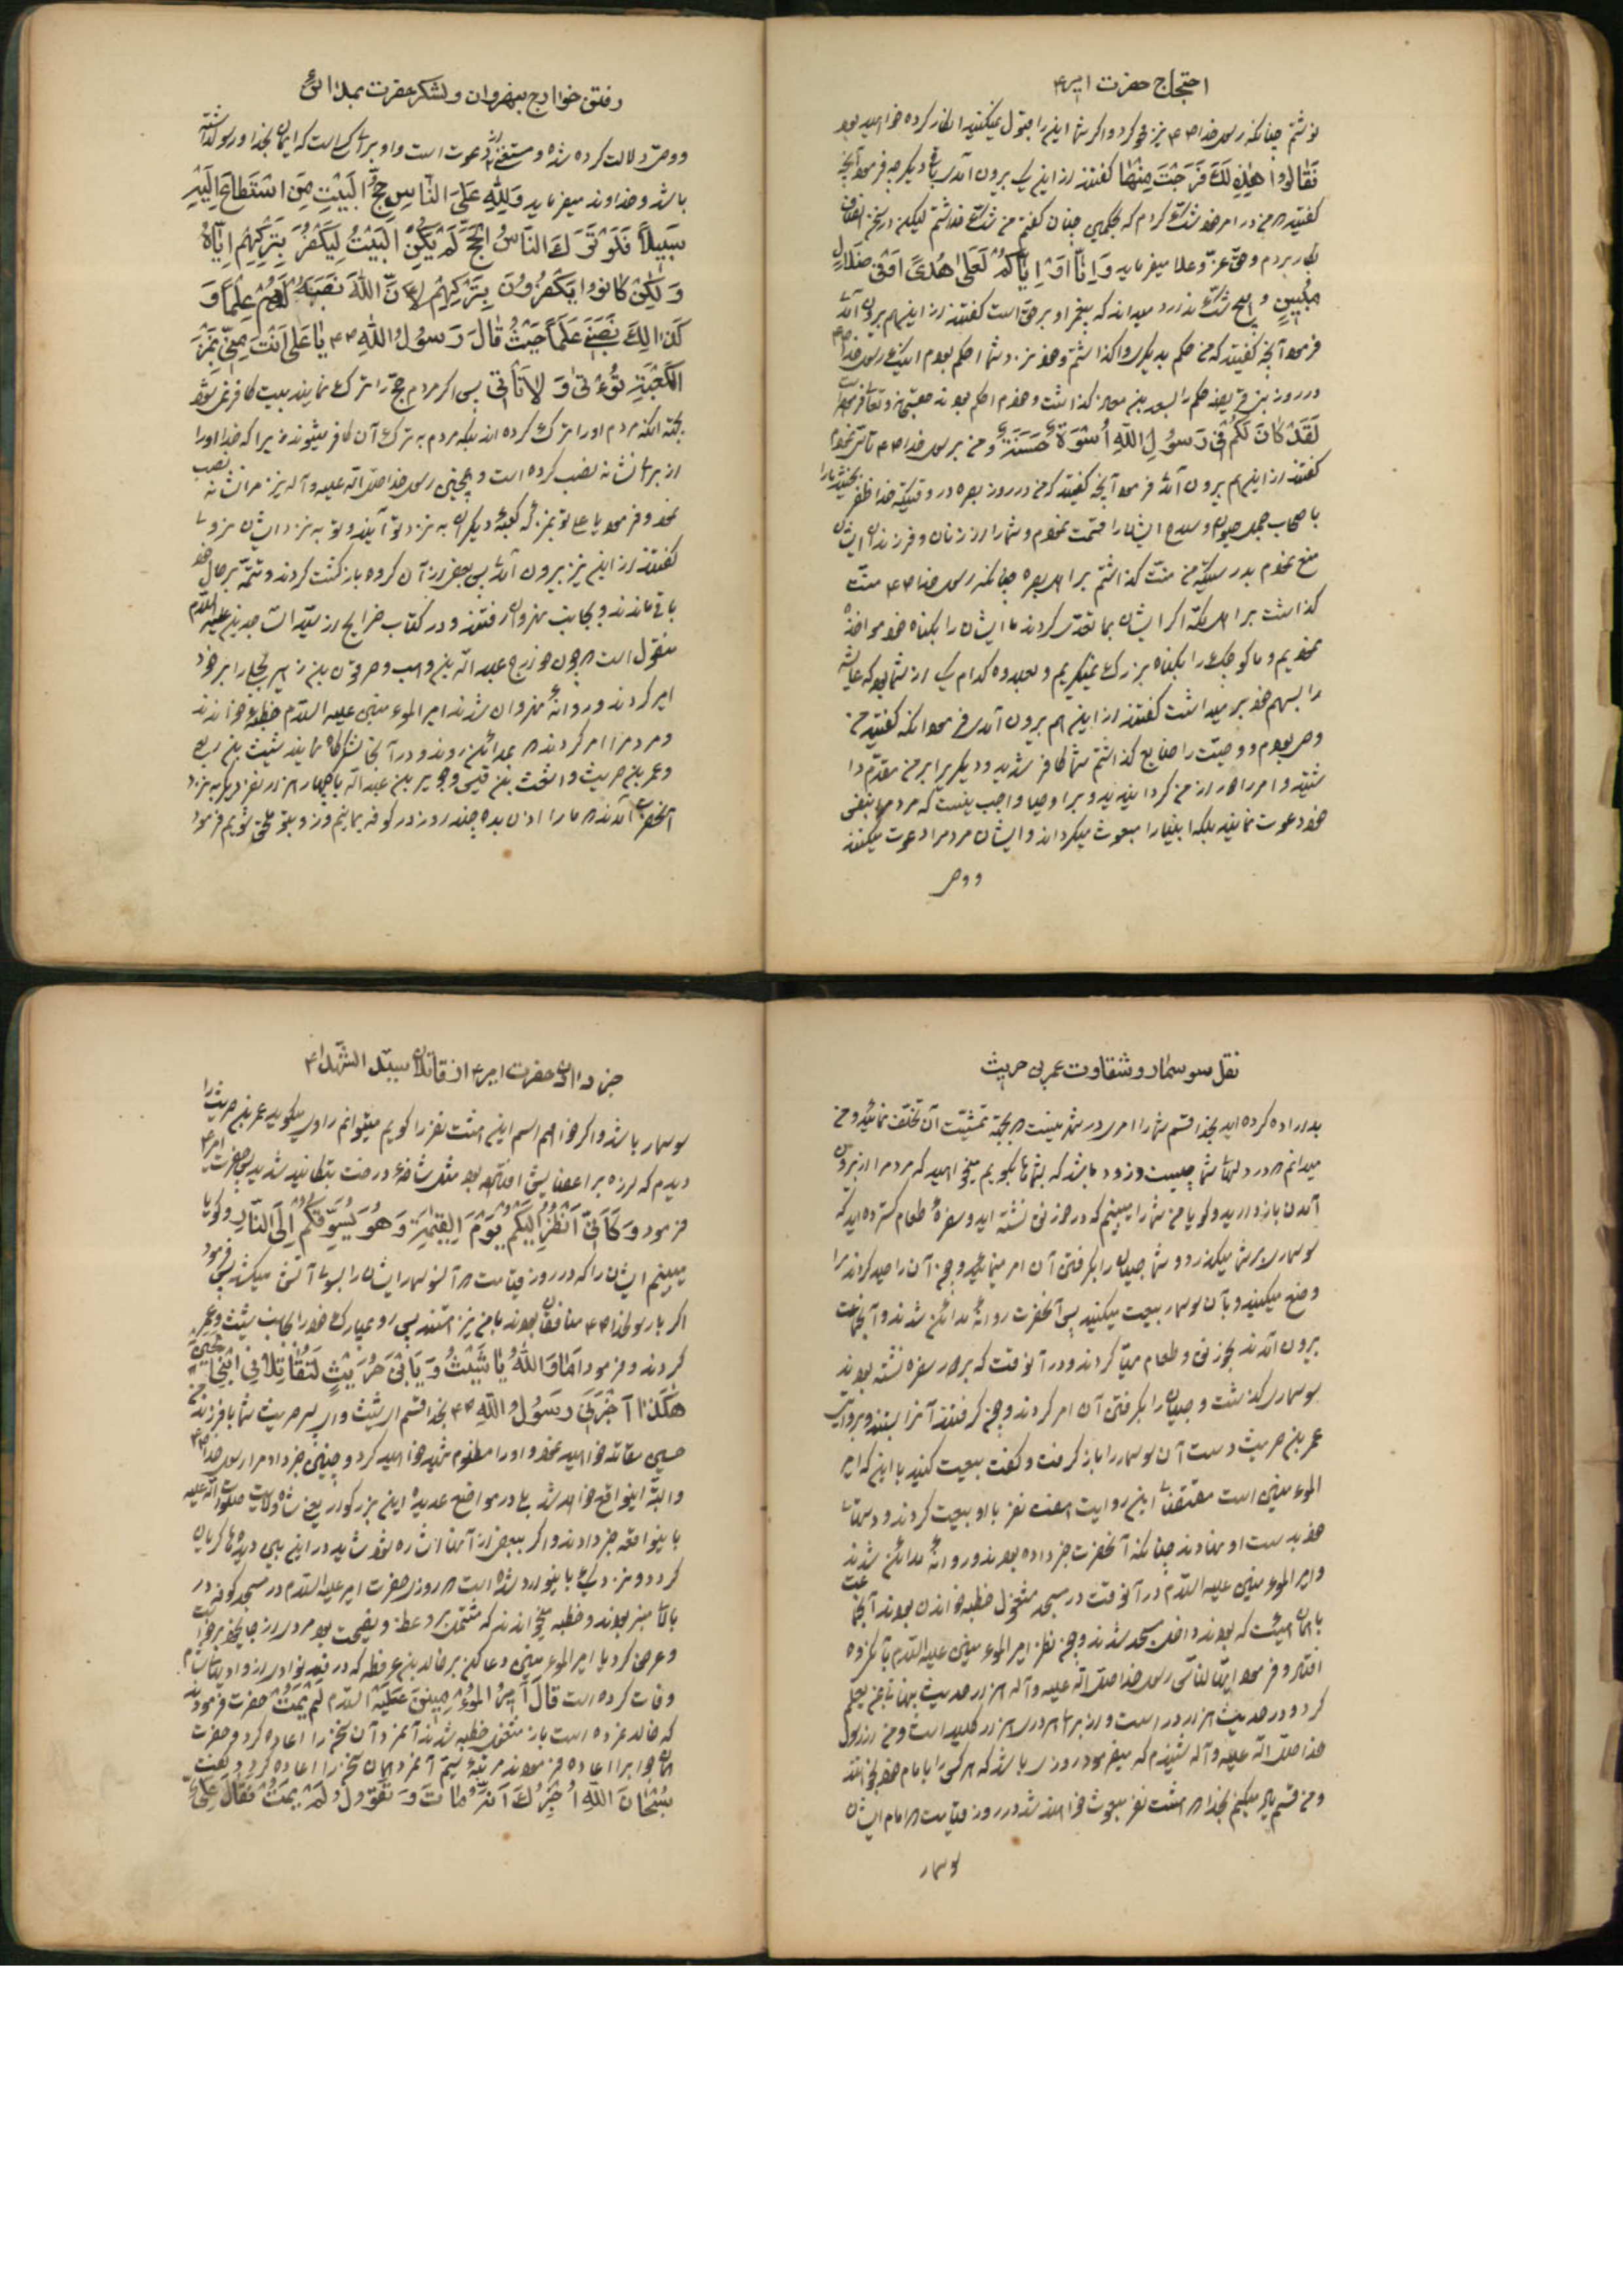 احتجاج حضرت امیر۴
نوشتم چنانکه رسول خدا ۴۴ نیز محو کرد و اگر شما این را قبول نمیکنید انکار کرده خواهید بود
فَقَالُوا هٰذِهِ لَكَ فَرَجْتَ مِنْهٰا گفتند از این یک بیرون آمدی باقی دیگر چه فرمود آنچه
گفتید که من در امر خود شک کردم که بحکمین چنان گفتم من شک نداشتم لیکن در سخن انصاف
بکار بردم و حق عز و علا میفرماید وَاِنّٰا اَوْ اِیّٰاکُمْ لَعَلیٰ هُدیً اَوْفی ضَلالٍ
مُبینٍ و هیچ شک ندارد میداند که پیغمبر او بر حق است گفتند از این هم بیرون آمد
فرمود آنچه گفتید که من حکم بدیگری واگذاشتم و خود نزد شما احکم بودم اینک رسول خدا ۴۴
در روز بنی قریظه حکم را بسعد بن معاذ گذاشت و خود احکم بود حقتعالی فرمود
لَقَدْ کٰانَ لَکُمْ فی رَسُولِ اللّٰهِ اُسْوَةٌ حَسَنَةٌ و من برسول خدا ۴۴ تاسی نمودم
گفتند از این هم بیرون آمد فرمود آنچه گفتید که من در روز بصره در وقتیکه خدا ظفر بخشید ما را
باصحاب جمل و سلاح ایشان را قسمت نمودم و شما را از زنان و فرزندان ایشان
منع نمودم بدرستیکه من منت گذاشتم بر اهل بصره چنانکه رسول خدا ۴۴ منت
گذاشت بر اهل مکه اگر ایشان بما تعدی کردند ما ایشان را بگناه خود مواخذه
نمودیم و ما کوچک را بگناه بزرگ نمیگیریم و بعد وه کدام یک از شما بود که عایشه
را بسهم خود بر میداشت گفتند از این هم بیرون آمدی فرمود آنکه گفتید من
وصی بودم و وصیت را ضایع گذاشتم شما کافر شدید و دیگری را بر من مقدم دا
شتید و امر را از من گردانیدید و بر اوصیا واجب نیست که مردم را بنفس
خود دعوت نمایند بلکه انبیا را مبعوث میگرداند و ایشان مردم را دعوت میکنند
و وصی
رفتن خوارج بنهروان و لشکر حضرت بمدائن
و وصی دلالت کرده شده و مستغنی از دعوت است و او برای کسی است که ایمان بخدا و رسول داشته
باشد و خداوند میفرماید وَلِلّٰهِ عَلَی النّٰاسِ حِجُّ الْبَیْتِ مَنِ اسْتَطٰاعَ اِلَیْهِ
سَبیلاً فَلَوْ تَرَكَ النّٰاسُ الْحَجَّ لَمْ یَکُنِ الْبَیْتُ لِیَکْفُرَ بِتَرْکِهِمْ اِیّٰاهُ
وَلٰکِنْ کٰانُوا یَکْفُرُونَ بِتَرْکِهِمْ لِاَنَّ اللّٰهَ نَصَبَهُ لَهُمْ عَلَماً وَ
کَذٰلِكَ نَصَبَنی عَلَماً حَیْثُ قٰالَ رَسُولُ اللّٰهِ ۴۴ یٰا عَلیُّ اَنْتَ مِنّی بِمَنْزِلَةِ
الْکَعْبَةِ تُؤْتیٰ وَلاٰ تَأْتی پس اگر مردم حج را ترک نمایند بیت کافر نمی شود
بجهة آنکه مردم او را ترک کرده اند بلکه مردم به ترک آن کافر میشوند زیرا که خدا او را
از برای نشانه نصب کرده است و همچنین رسول خدا صلی الله علیه و آله نیز مرا نشانه نصب
نمود و فرمود یا علی تو بمنزله کعبه دیگران به نزد تو آیند و تو به نزد ایشان نروی
گفتند از این نیز بیرون آمد پس بعضی از آن گروه بازگشت کردند و تتمه بر حال خود
باقی ماندند و بجانب نهروان رفتند و در کتاب خرایج از سید الساجدین علیه السلام
منقول است که چون خوارج عبد الله بن وهب و حرقوص بن زهیر بجلی را بر خود
امیر کردند و روانه نهروان شدند امیر المومنین علیه السلام خطبه خواندند
و مردم را امر کردند که بمدائن روند و در آنجا لشکرگاه نمایند شیث بن ربعی
و عمر بن حریث و اشعث بن قیس و جریر بن عبد الله با چهار هزار نفر دیگر به نزد
آنحضرت آمدند که ما را اذن بده چند روز در کوفه بمانیم و زود بتو ملحق شویم فرمود
نقل سوسمار و شقاوت عمر بن حریث
بد اراده کرده اید بخدا قسم شما را امری در شهر نیست که بجهة تمشیت آن تخلف نمائید و من
میدانم که در دلهای شما چیست و زود باشد که بشما بگویم میخواهید که مردم را از بیرون
آمدن باز دارید و گویا من شما را میبینم که در خورنق نشسته اید و سفره طعام گسترده اید که
سوسماری بر شما میگذرد و شما صبیان را بگرفتن آن امر مینمائید و چون آن را صید کردند مرا
وضع میکنید و بآن سوسمار بیعت میکنید پس آنحضرت روانه مدائن شدند و آنجماعت
بیرون آمدند بخورنق و طعام مهیا کردند و در آنوقت که بر سر سفره نشسته بودند
سوسماری گذشت و صبیان را بگرفتن آن امر کردند و چون گرفتند آنرا بستند و بروایتی
عمر بن حریث دست آن سوسمار را باز گرفت و گفت بیعت کنید با این که امیر
المومنین است مقتضای این روایت هفت نفر با او بیعت کردند و دستهای
خود بدست او نهادند چنانکه آنحضرت خبر داده بودند و روانه مدائن شدند
و امیر المومنین علیه السلام در آنوقت در مسجد مشغول خطبه خواندن بودند آنجماعت
با همان هیئت که بودند داخل مسجد شدند و چون نظر امیر المومنین علیه السلام بآنگروه
افتاد فرمود ایها الناس رسول خدا صلی الله علیه و آله هزار حدیث پنهانی بمن تعلم
کرد و در هر حدیث هزار در است و از برای هر دری هزار کلید است و من از رسول
خدا صلی الله علیه و آله شنیدم که میفرمود روزی باشد که هر کسی را با امام خود بخوانند
و من قسم یاد میکنم بخدا که هشت نفر مبعوث خواهند شد در روز قیامت که امام ایشان
سوسمار
خبر دادن حضرت امیر۴ از قاتلان سید الشهدا۴
سوسمار باشد و اگر خواهم اسم این هشت نفر را گویم میتوانم راوی میگوید عمر بن حریث را
دیدم که لرزه بر اعضایش افتاده بود مثل شاخه درخت بتکانید شدید پس حضرت امیر۴
فرمود وَکَاَنّی اَنْظُرُ اِلَیْکُمْ یَوْمَ الْقِیٰمَةِ وَهُوَ یَسُوقُکُمْ اِلَی النّٰارِ و گویا
میبینم ایشان را که در روز قیامت که آنسوسمار ایشان را بسوی آتش میکشد پس فرمود
اگر با رسول خدا ۴۴ منافقان بودند با من نیز هستند پس رو مبارک خود را بجانب شیث و عمر
کردند و فرمود اَمٰا وَاللّٰهُ یٰا شَیْثُ وَیَا بْنَ حُرَیْثٍ لَتُقٰاتِلاٰنِ ابْنِیَ الْحُسَیْنَ
هٰکَذٰا اَخْبَرَنی رَسُولُ اللّٰهِ ۴۴ بخدا قسم ای شیث و ای پسر حریث شما با فرزند من
حسین مقاتله خواهید نمود و او را مظلوم شهید خواهید کرد و چنین خبر داد مرا رسول خدا ۴۴
و البته اینواقع خواهد شد بلی در مواضع عدیده این بزرگوار یعنی شاه ولایت صلوات الله علیه
باینواقعه خبر دادند و اگر ببعضی از آنها اشاره شود شاید در این بین دیده ها گریان
گردد و نزدیک باینوارد شده است که روزی حضرت امیر علیه السلام در مسجد کوفه در
بالای منبر بودند و خطبه میخواندند که مشتمل بر وعظ و نصیحت بود مردی از جای خود برخواست
و عرض کرد یا امیر المومنین دعا کن بر خالد بن عرفطه که در وادی از وادیهای شام
وفات کرده است قٰالَ اَمیرُ الْمُؤْمِنینَ عَلَیْهِ السلام لَمْ یَمُتْ حضرت فرمودند
که خالد نمرده است باز مشغول خطبه شدند آنمرد آن سخن را اعاده کرد و حضرت
همان جواب را اعاده فرمودند مرتبه سیم آنمرد همان سخن را اعاده کرد و گفت
سُبْحٰانَ اللّٰهِ اُخْبِرُكَ اَنَّهُ مٰاتَ وَتَقُولُ لَمْ یَمُتْ فَقٰالَ عَلِیٌّ